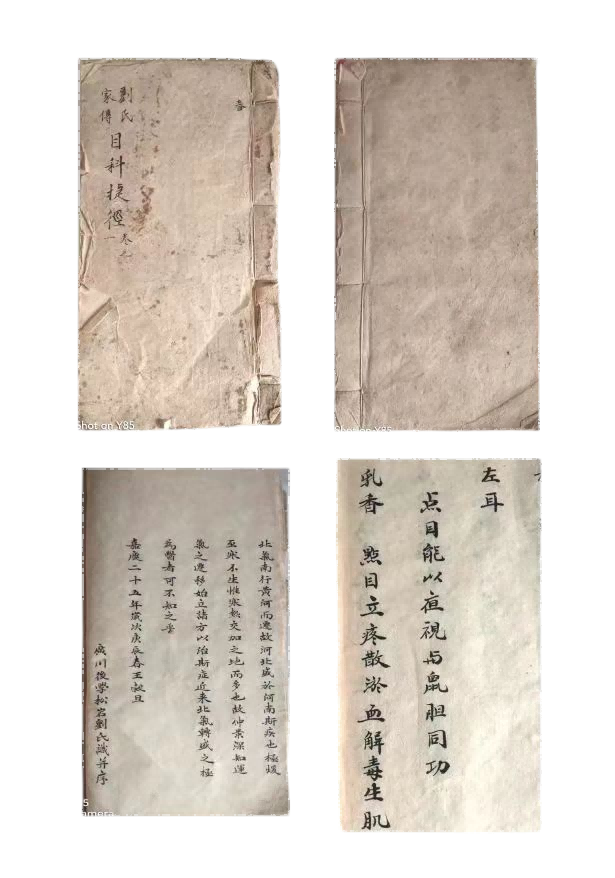 春
劉氏
家傳
目科捷徑
卷之
一
Shot on Y85
Shot on Y85
北氣南行黃河而遷故河北盛於河南斯疾也極煖
至寒不生惟寒熱交加之地而多也故仲景深知運
氣之遷移始立諸方以治斯症近来北氣轉盛之極
為醫者可不知之乎
嘉慶二十五年歲次庚辰春王穀旦
廣川後學松岩劉氏識并序
左耳
点目能以夜視与鼠胆同功
乳香 點目立疼散淤血解毒生肌